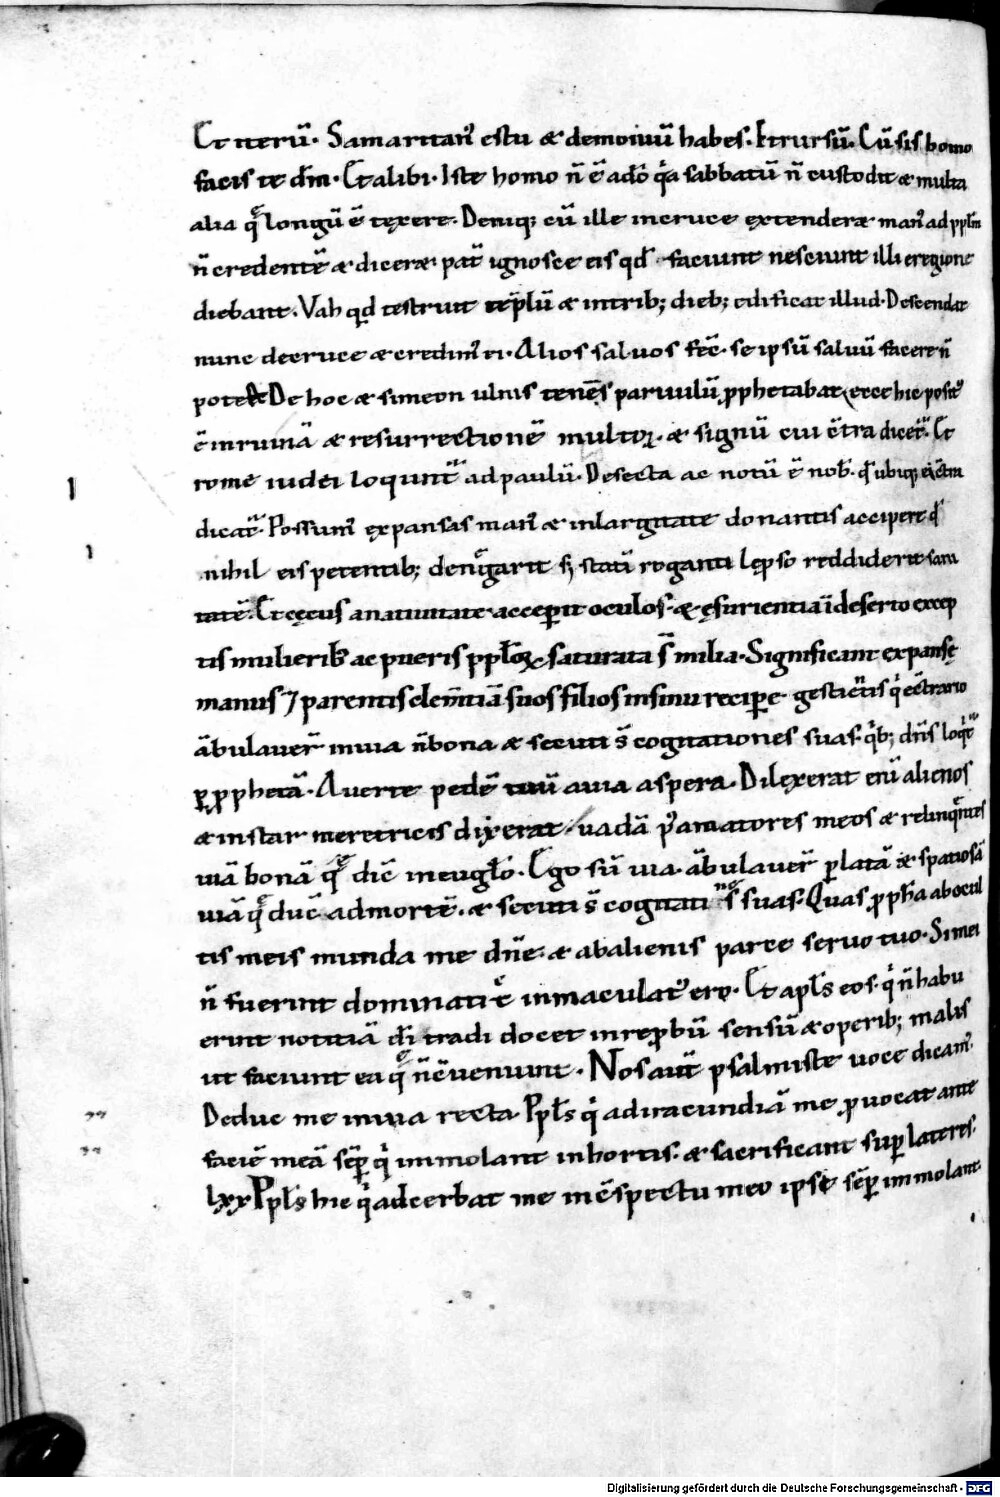 Et iterū. Samaritan᷒ es tu & demoniū habes. Et rursū. Cū sis homo
facis te dm̄. Et alibi. Iste homo n̄ ē a dō q̓a sabbatū n̄ custodit & multa
alia q̄ longū ē texere. Deniq; cū ille in cruce extender& man᷒ ad pplm̄
n̄ credentē & dicer&. pat̄ ignosce eis qd̄ faciunt nesciunt illi e regione
dicebant. Vah qd destruit tēplū & in trib; dieb; edificat illud. Descendat
nunc de cruce & credim᷒ ei. Alios saluos fec̄. se ipsū saluū facere n̄
potest De hoc & simeon ulnis tenēs paruulū pphetabat, ecce hic posit᷒
ē in ruinā & resurrectionē multoꝝ. & signū cui c̄tradicet̄. Et
rome iudei loqunt̄ ad paulū. De secta ac notū ē nob̄. qd̄ ubiq; ei c̄tra
dicat̄. Possum᷒ expansas man᷒ & in largitate donantis accipere qd̄
nihil eis petentib; denegarit s; statū roganti lepso reddiderit sani
tatē. Et cęcus a natiuitate acceperit oculos. & esurientia ī deserto excep
tis mulierib; ac pueris pploꝝ saturata s̄ milia. Significant expanse
manus ⁊ parentis clem̄tiā suos filios in sinu recipe gestientis q̓ e c̄trario
ābulauer̄ in uia n̄ bona & secuti s̄ cogitationes suas. q̓b; dn̄s loq̓t̄
p pphetā. Auerte pedē tuū a uia aspera. Dilexerat enī alienos
& instar meretricis dixerat. uadā p᷒ amatores meos & relinq̄ntes
uiā bonā q̄ dic̄ in euglō. Ego sū uia. ābulauer̄ p latā & spatiosā
uiā q̄ duc̄ ad mortē. & secuti s̄ cogitationēs suas. Quas ppha ab occul
tis meis munda me dn̄e. & ab alienis parce seruo tuo. Si mei
n̄ fuerint dominati tc̄ inmaculat᷒ ero. Et apls̄ eos. q̓ n̄ habu
erint notitiā dī tradi docet in repbū sensū & operib; malis
ut faciunt ea q̄ n̄ c̄ueniunt. Nos aūt psalmiste uoce dicam᷒.
Deduc me in uia recta Ppls̄ q̓ ad iracundiā me prouocat ante
faciē meā sēp q̓ immolant in hortis. & sacrificant sup lateres.
lxx Ppls̄ hic q̓ adcerbat me in c̄spectu meo ipse sēp immolant
Digitalisierung gefördert durch die Deutsche Forschungsgemeinschaft - DFG